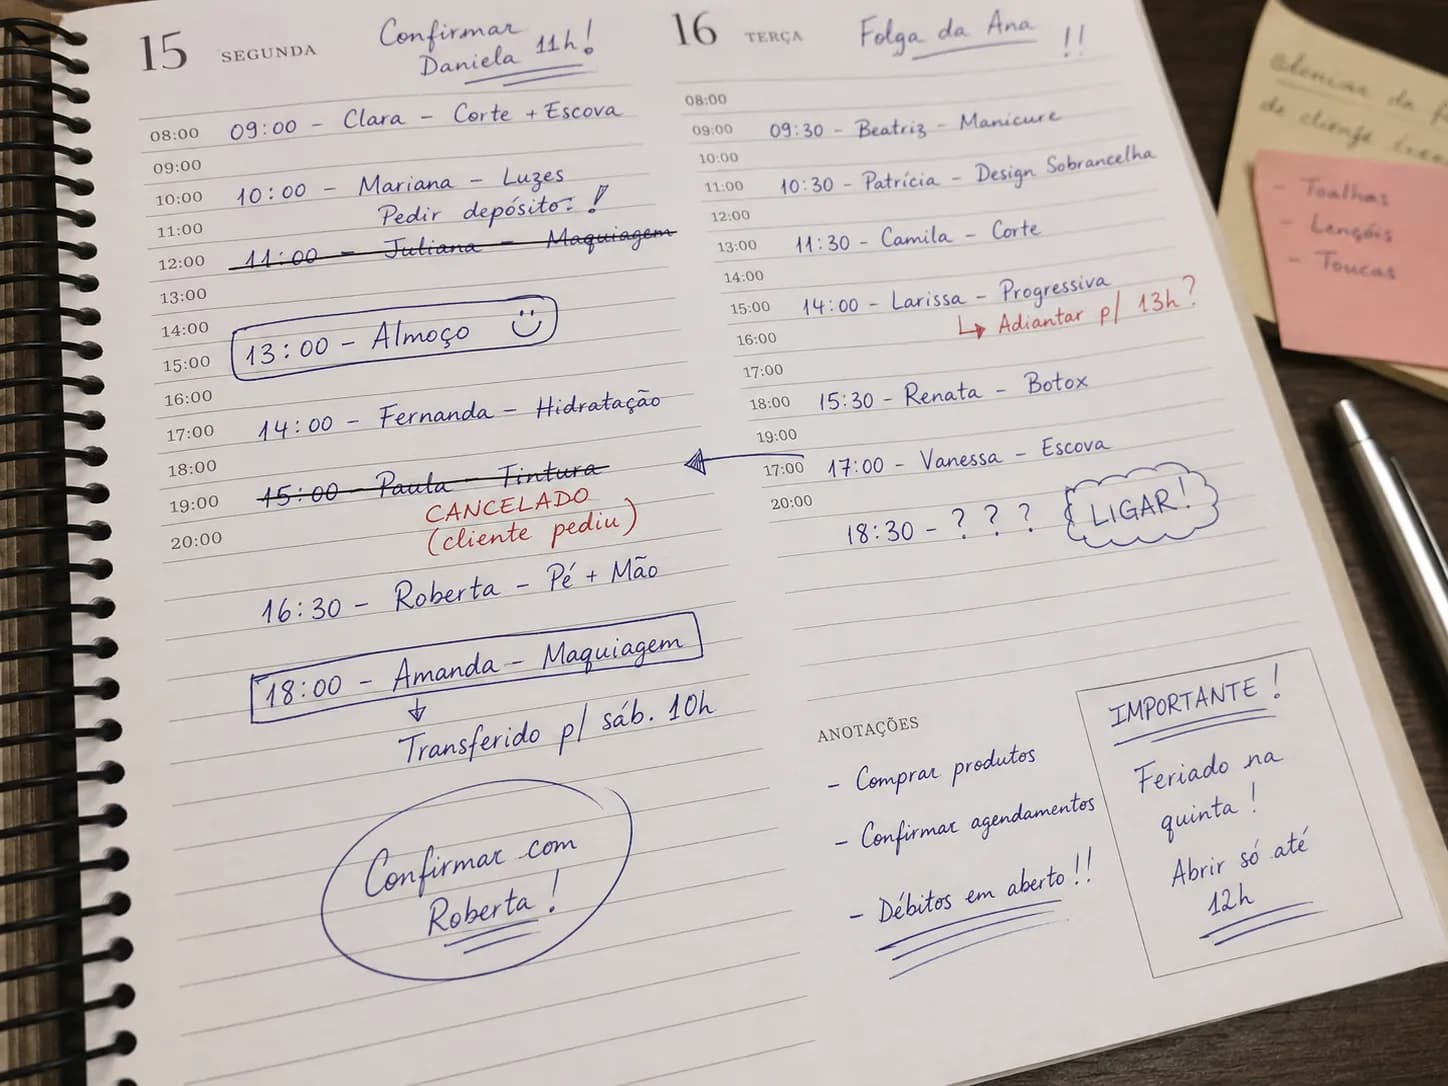 15 SEGUNDA
Confirmar
Daniela 11h!
08:00
09:00 - Clara - Corte + Escova
09:00
10:00
10:00 - Mariana - Luzes
Pedir depósito: !
11:00
11:00 - Juliana - Maquiagem
12:00
13:00
14:00
13:00 - Almoço
15:00
16:00
14:00 - Fernanda - Hidratação
17:00
18:00
15:00 - Paula - Tintura
19:00
CANCELADO
(cliente pediu)
20:00
16:30 - Roberta - Pé + Mão
18:00 - Amanda - Maquiagem
Transferido p/ sáb. 10h
Confirmar com
Roberta!
16 TERÇA
Folga da Ana !!
08:00
09:00
09:30 - Beatriz - Manicure
10:00
11:00
10:30 - Patrícia - Design Sobrancelha
12:00
13:00
11:30 - Camila - Corte
14:00
15:00
14:00 - Larissa - Progressiva
Adiantar p/ 13h?
16:00
17:00
18:00
15:30 - Renata - Botox
19:00
17:00
17:00 - Vanessa - Escova
20:00
18:30 - ? ? ?
LIGAR!
ANOTAÇÕES
- Comprar produtos
- Confirmar agendamentos
- Débitos em aberto!!
IMPORTANTE!
Feriado na
quinta!
Abrir só até
12h
da
de cliente
- Toalhas
- Lençóis
- Toucas